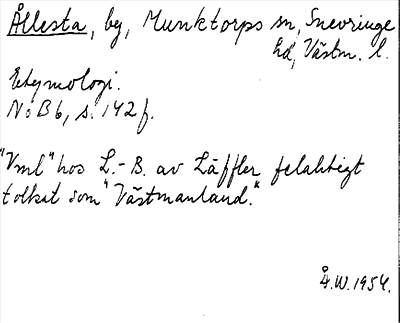 Ållesta, by, Munktorps sn, Snevringe
hd, Västm. l.
Etymologi.
NoB 6, s. 142 f.
"Vml" hos L.-B. av Läffler felaktigt
tolkat som "Västmanland."
Å.W. 1954.